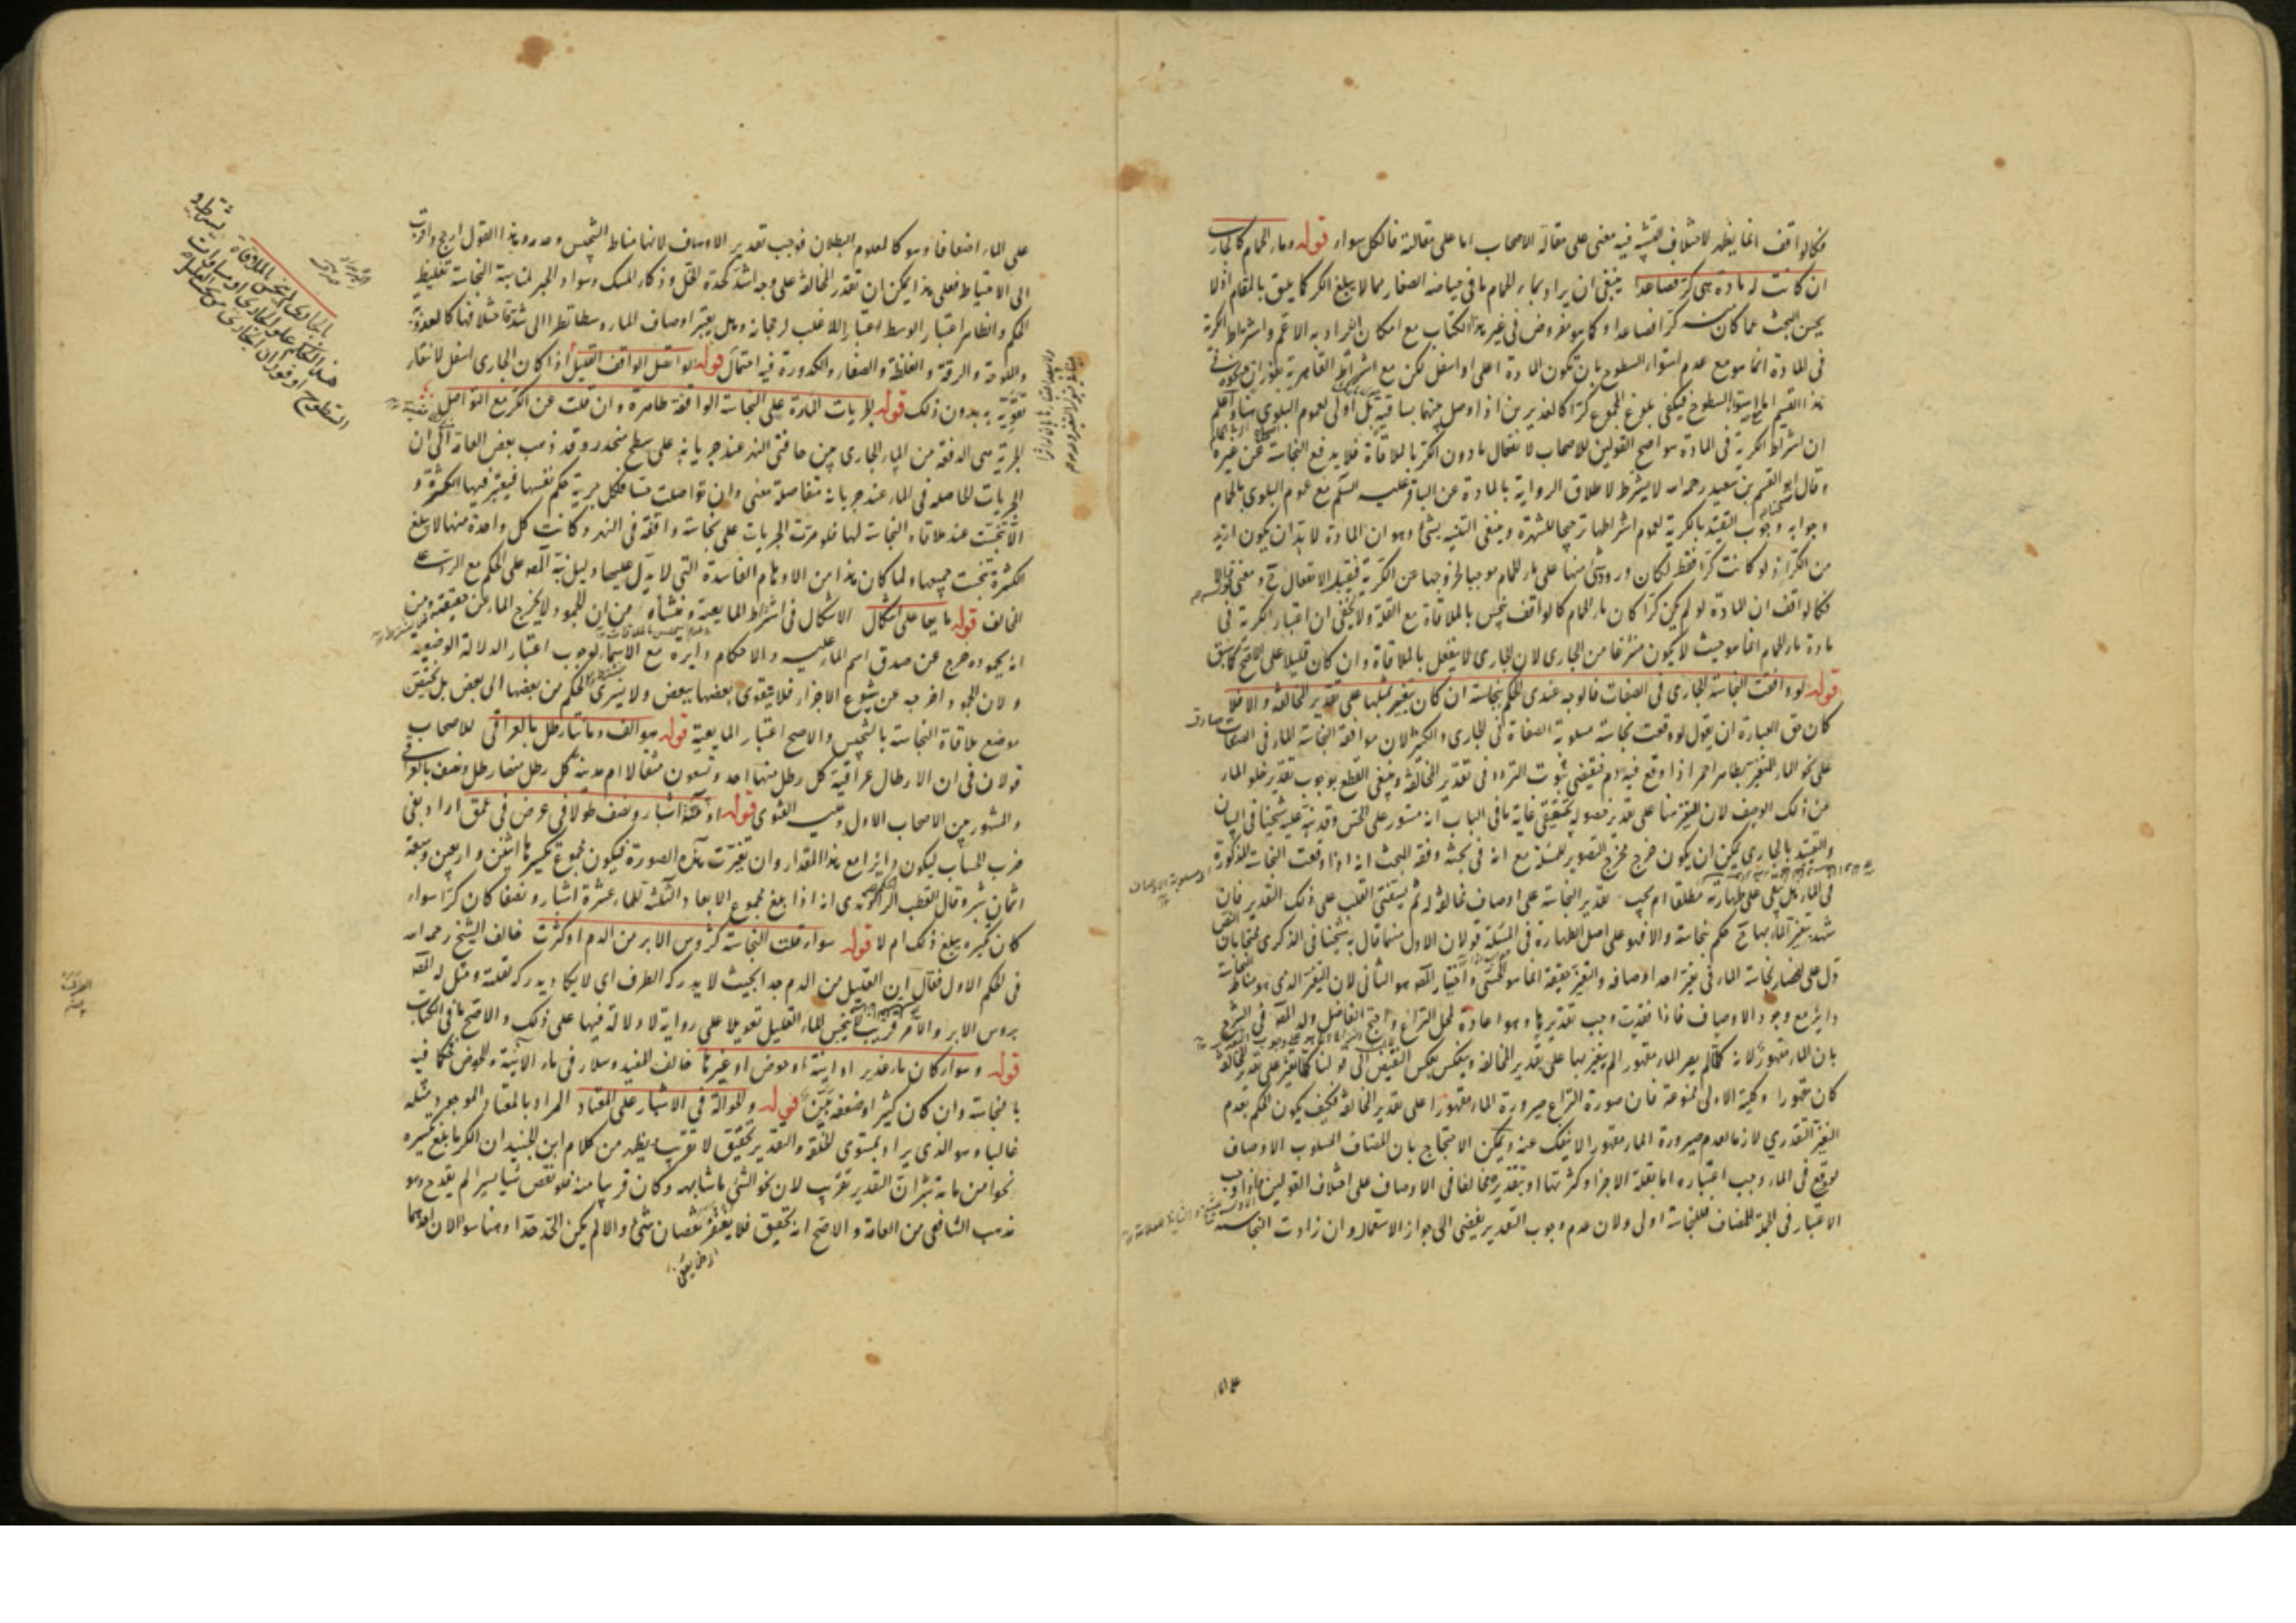 فكالواقف انما يظهر لاختلاف التشبيه فيه معنى على مقالة الاصحاب اما على مقالته فالكل سواء قوله وماء الحمام كالجاري
ان كانت له مادة هي كر فصاعدا ينبغي ان يراد بماء الحمام ما في حياضه الصغار مما لا يبلغ الكر كما يليق بالمقام اذ لا
يحسن البحث عما كان منه كرا فصاعدا وكما هو مفروض في غير هذا الكتاب مع امكان ان يراد به الاعم واشتراط الكرية
في المادة انما هو مع عدم استواء السطوح بان تكون المادة اعلى او اسفل لكن مع اشتراط القاهرية بفوران ونحوه في
هذا القسم اما مع استواء السطوح فيكفي بلوغ المجموع كرا كالغديرين اذا وصل بينهما بساقية بل اولى لعموم البلوى هنا واعلم
ان اشتراط الكرية في المادة هو اصح القولين للاصحاب لانفعال ما دون الكر بالملاقاة فلا يدفع النجاسة عن غيره
وقال ابو القسم بن سعيد رحمه الله لا يشترط لاطلاق الرواية بالمادة عن الباقر عليه السلم مع عموم البلوى بالحمام
وجوابه وجوب التقييد بالكرية لعموم اشتراطها ترجيحا للشهرة وينبغي التنبيه بشئ وهو ان المادة لا بد ان يكون ازيد
من الكر اذ لو كانت كرا فقط لكان ورود شئ منها على ماء الحمام موجبا لخروجها عن الكرية فيقبل الانفعال ح ومعنى قوله والا
فكالواقف ان المادة لو لم يكن كرا كان ماء الحمام كالواقف ينجس بالملاقاة مع القلة ولا يخفى ان اعتبار الكرية في
مادة ماء الحمام انما هو حيث لا يكون متفرعا من الجاري لان الجاري لا ينفعل بالملاقاة وان كان قليلا على الاصح كما سبق
قوله لو وافقت النجاسة الجاري في الصفات فالوجه عندي الحكم بنجاسته ان كان يتغير بمثلها على تقدير المخالفة والا فلا
كان حق العبارة ان يقول لو وقعت نجاسة مسلوبة الصفات في الجاري والكثير لان موافقة النجاسة الماء في الصفات صادق
على نحو الماء المتغير بطاهر احمر اذا وقع فيه دم فيقتضي ثبوت التردد في تقدير المخالفة وينبغي القطع بوجوب تقدير خلو الماء
عن ذلك الوصف لان التغير هنا على تقدير حصوله تحقيقي غاية ما في الباب انه مستور على الحس وقد نبه عليه شيخنا في البيان
والتقييد بالجاري يمكن ان يكون خرج مخرج التصوير للمسئلة مع انه في بحثه وفقه البحث انه اذا وقعت النجاسة المذكورة
في الماء هل يبقى على طهارته مطلقا ام يجب تقدير النجاسة على اوصاف مخالفة له ثم يستفتى القلب على ذلك التقدير فان
شهد بتغير الماء بها ح حكم بنجاسته والا فهو على اصل الطهارة في المسئلة قولان الاول منهما قال به شيخنا في الذكرى محتجا بان النص
دل على انحصار نجاسة الماء في تغير احد اوصافه والتغير حقيقة انما هو الحسي واختيار المصه هو الثاني لان التغير الذي هو مناط النجاسة
دائر مع وجود الاوصاف فاذا فقدت وجب تقديرها وهو اعادة لمحل النزاع واحتج الفاضل ولد المصه في الشرح
بان الماء مقهور لانه كلما لم يصر الماء مقهورا لم يتغير بها على تقدير المخالفة وينعكس بعكس النقيض الى قولنا كلما تغير على تقدير المخالفة
كان مقهورا وكلية الاولى ممنوعة فان صورة النزاع صيرورة الماء مقهورا على تقدير المخالفة فكيف يكون الحكم بعدم
التغير التقديري لازما لعدم صيرورة الماء مقهورا لا ينفك عنه ويمكن الاحتجاج بان المضاف المسلوب الاوصاف
لو وقع في الماء وجب اعتباره اما بقلة الاجزاء وكثرتها او بتقديره مخالفا في الاوصاف على اختلاف القولين فاذا وجب
الاعتبار في الجملة للمضاف فللنجاسة اولى ولان عدم وجوب التقدير يفضي الى جواز الاستعمال وان زادت النجاسة
على الما
على الماء اضعافا وهو كالمعلوم البطلان فوجب تقدير الاوصاف لانها مناط التنجيس وعدمه وهذا القول ارجح واقرب
الى الاحتياط فعلى هذا يمكن ان تقدر المخالفة على وجه اشد كحدة الخل وذكاء المسك وسواد الحبر لمناسبة النجاسة تغليظ
الحكم والظاهر اعتبار الوسط اعتبارا للاغلب لرجحانه وهل يعتبر اوصاف الماء وسطا نظرا الى شدة اختلافها كالعذوبة
والملوحة والرقة والغلظة والصفاء والكدورة فيه احتمال قوله لو اتصل الواقف القليل اذا كان الجاري اسفل لانتفاء
تقويه به بدون ذلك قوله الجريات المارة على النجاسة الواقفة طاهرة وان قلت عن الكر مع التواصل
الجرية هي الدفعة من الماء الجاري بين حافتي النهر عند جريانه على سطح منحدر وقد ذهب بعض العامة الى ان
الجريات الحاصلة في الماء عند جريانه متفاصلة معنى وان تواصلت حسا فلكل جرية حكم نفسها فيعتبر فيها الكثرة و
الا تنجست عند ملاقاة النجاسة لها فلو مرت الجريات على نجاسة واقفة في النهر وكانت كل واحدة منها لا يبلغ
الكثرة تنجست جميعها ولما كان هذا من الاوهام الفاسدة التي لا يدل عليها دليل نبه المصه على الحكم مع الرد على
المخالف قوله مايعا على اشكال الاشكال في اشتراط المايعية ومنشاه من ان الجمود لا يخرج الماء عن حقيقته ومن
انه بجموده خرج عن صدق اسم الماء عليه والاحكام دايرة مع الاسماء لوجوب اعتبار الدلالة الوضعية
ولان الجمود اخرجه عن شيوع الاجزاء فلا يتقوى بعضها ببعض ولا يسري الحكم من بعضها الى بعض بل يختص
موضع ملاقاة النجاسة بالتنجيس والاصح اعتبار المايعية قوله هو الف ومائتا رطل بالعراقي للاصحاب
قولان في ان الارطال عراقية كل رطل منها احد وتسعون مثقالا ام مدنية كل رطل منها رطل ونصف بالعراقي
والمشهور بين الاصحاب الاول وعليه الفتوى قوله او ثلثة اشبار ونصف طولا في عرض في عمق اراد بفي
ضرب الحساب ليكون دائرا مع هذا المقدار وان تغيرت هذه الصورة فيكون مجموع تكسيرها اثنين واربعين وسبعة
اثمان شبر وقال القطب الراوندي انه اذا بلغ مجموع الابعاد الثلثة للماء عشرة اشبار ونصفا كان كرا سواء
كان تكسيره يبلغ ذلك ام لا قوله سواء قلت النجاسة كرؤس الابر من الدم او كثرت خالف الشيخ رحمه الله
في الحكم الاول فقال ان القليل من الدم جدا بحيث لا يدركه الطرف اي لا يكاد يدركه لقلته ومثل له المصه
برؤس الابر والامر قريب لا ينجس الماء القليل تعويلا على رواية لا دلالة فيها على ذلك والاصح ما في الكتاب
قوله وسواء كان ماء غدير او انية او حوض او غيرها خالف المفيد وسلار في ماء الانية والحوض فحكما فيه
بالنجاسة وان كان كثيرا وضعفه بين قوله والحوالة في الاشبار على المعتاد المراد بالمعتاد الموجود مثله
غالبا وهو الذي يراد بمستوى الخلقة والتقدير تحقيق لا تقريب ويظهر من كلام ابن الجنيد ان الكر ما بلغ تكسيره
نحوا من مائة شبر ان التقدير تقريب لان نحو الشئ ما شابهه وكان قريبا منه فلو نقص شيا يسيرا لم يقدح وهو
مذهب الشافعي من العامة والاصح انه تحقيق فلا يغتفر نقصان شئ والا لم يكن الحد حدا وهنا سؤالان احدهما